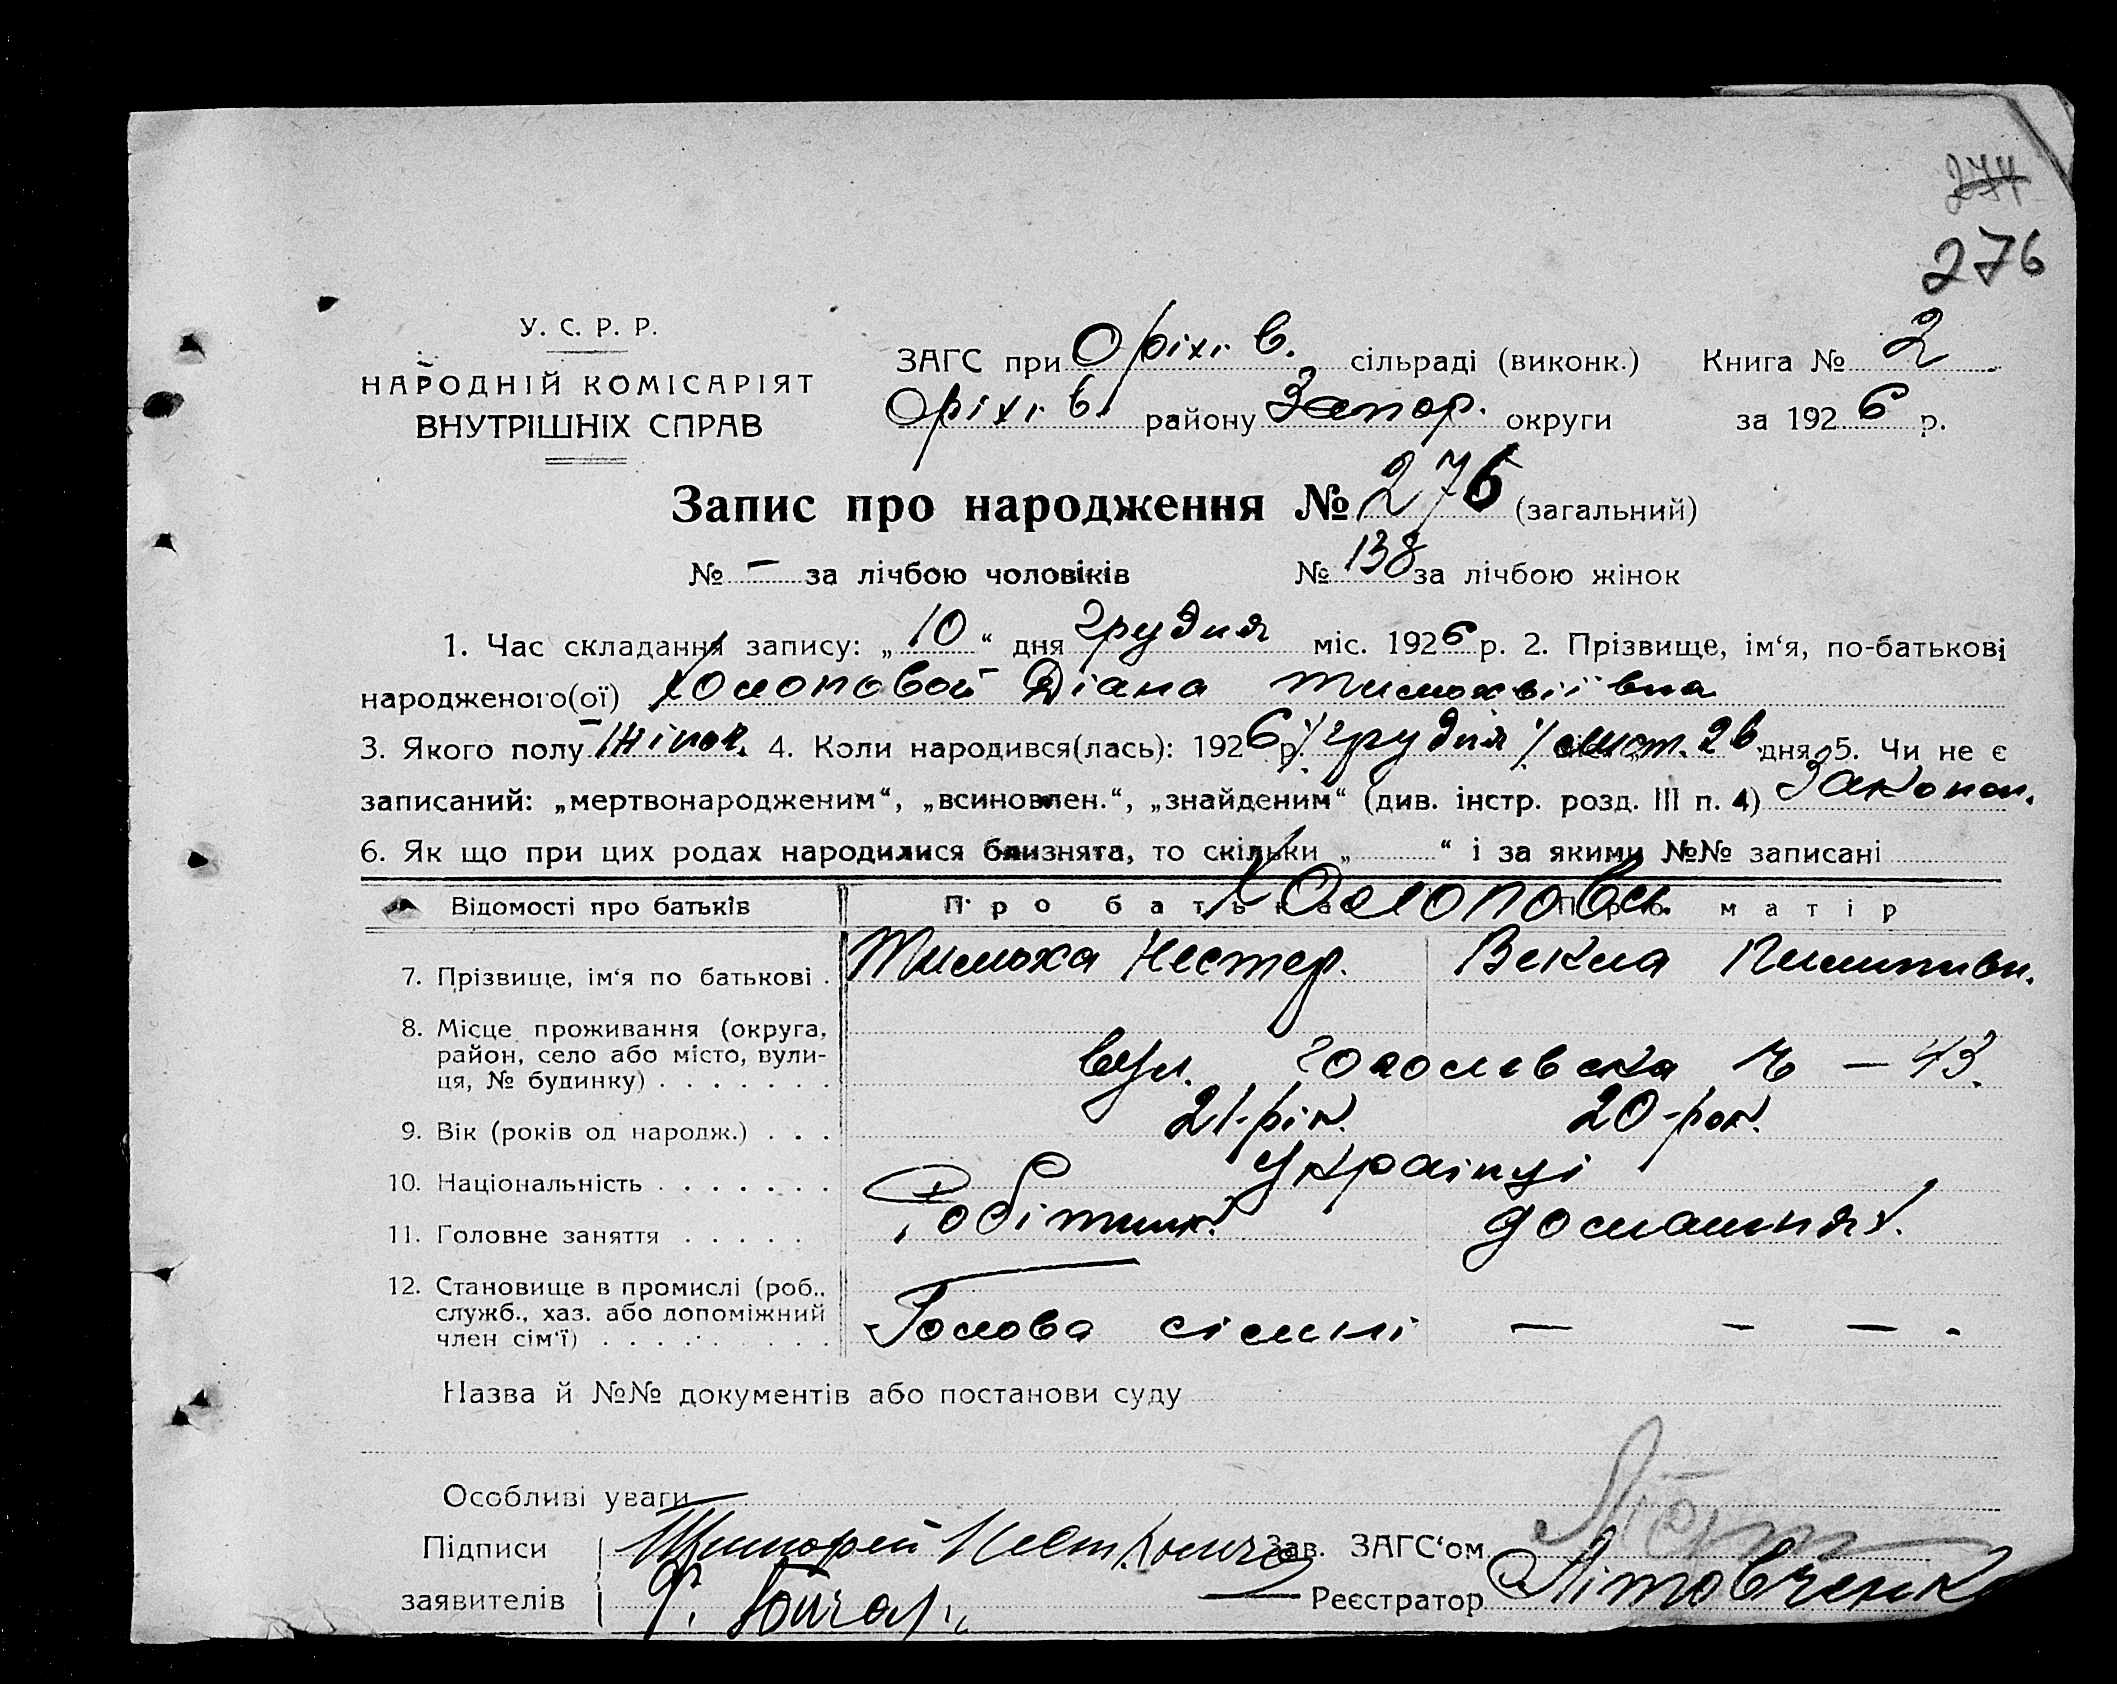 274
276
У. С. Р. Р.
НАРОДНІЙ КОМІСАРІЯТ
ВНУТРІШНІХ СПРАВ
ЗАГС при Оріхів. сільраді (виконк.) Книга № 2
Оріхів. району Запор. округи за 1926 р.
Запис про народження № 276 (загальний)
№ – за лічбою чоловіків № 138 за лічбою жінок
1. Час складання запису: „10“ дня грудня міс. 1926 р. 2. Прізвище, ім‘я, по-батькові
народженого(ої) Холоповой Діана Тимохвіївна
3. Якого полу Жіноч. 4. Коли народився(лась): 1926 р. грудня 26 дня 5. Чи не є
записаний: „мертвонародженим“, „всиновлен.“, „знайденим“ (див. інстр. розд. III п. 4) Законн.
6. Як що при цих родах народилися близнята, то скільки „ “ і за якими №№ записані
Відомості про батьків Про батька Холопови Про матір
7. Прізвище, ім‘я по батькові . Тимоха Нестер. Векла Пилипивн.
8. Місце проживання (округа,
район, село або місто, вули-
ця, № будинку) . . . . . . . вул. Гоголевська № – 43.
9. Вік (років од народж.) . . . 21-рік. 20-рок.
10. Національність . . . . . . . Українці
11. Головне заняття . . . . . Робітник. домашнях.
12. Становище в промислі (роб.,
служб., хаз. або допоміжний
член сім‘ї) . . . . . . . . . Голова сіммі – – – .
Назва й №№ документів або постанови суду
Особливі уваги
Підписи Тимофей Зав. ЗАГС‘ом
заявителів Реєстратор Літовченк